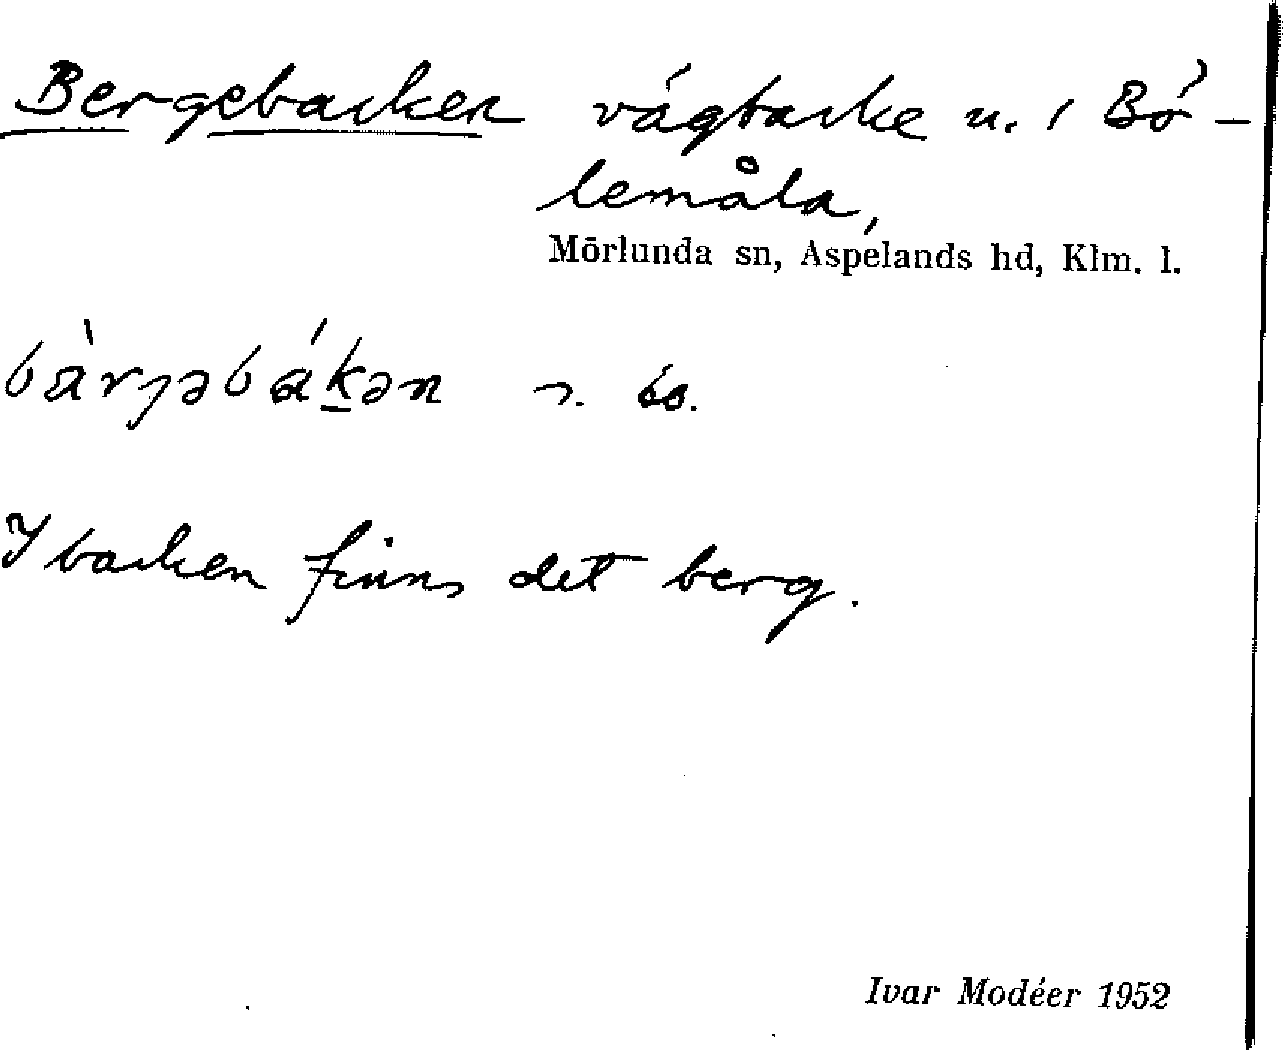 Bergebacken vägbacke n. i Bö-
lemåla,
Mörlunda sn, Aspelands hd, Klm. l.
bàrjəbákən
I backen finns det berg.
Ivar Modéer 1952